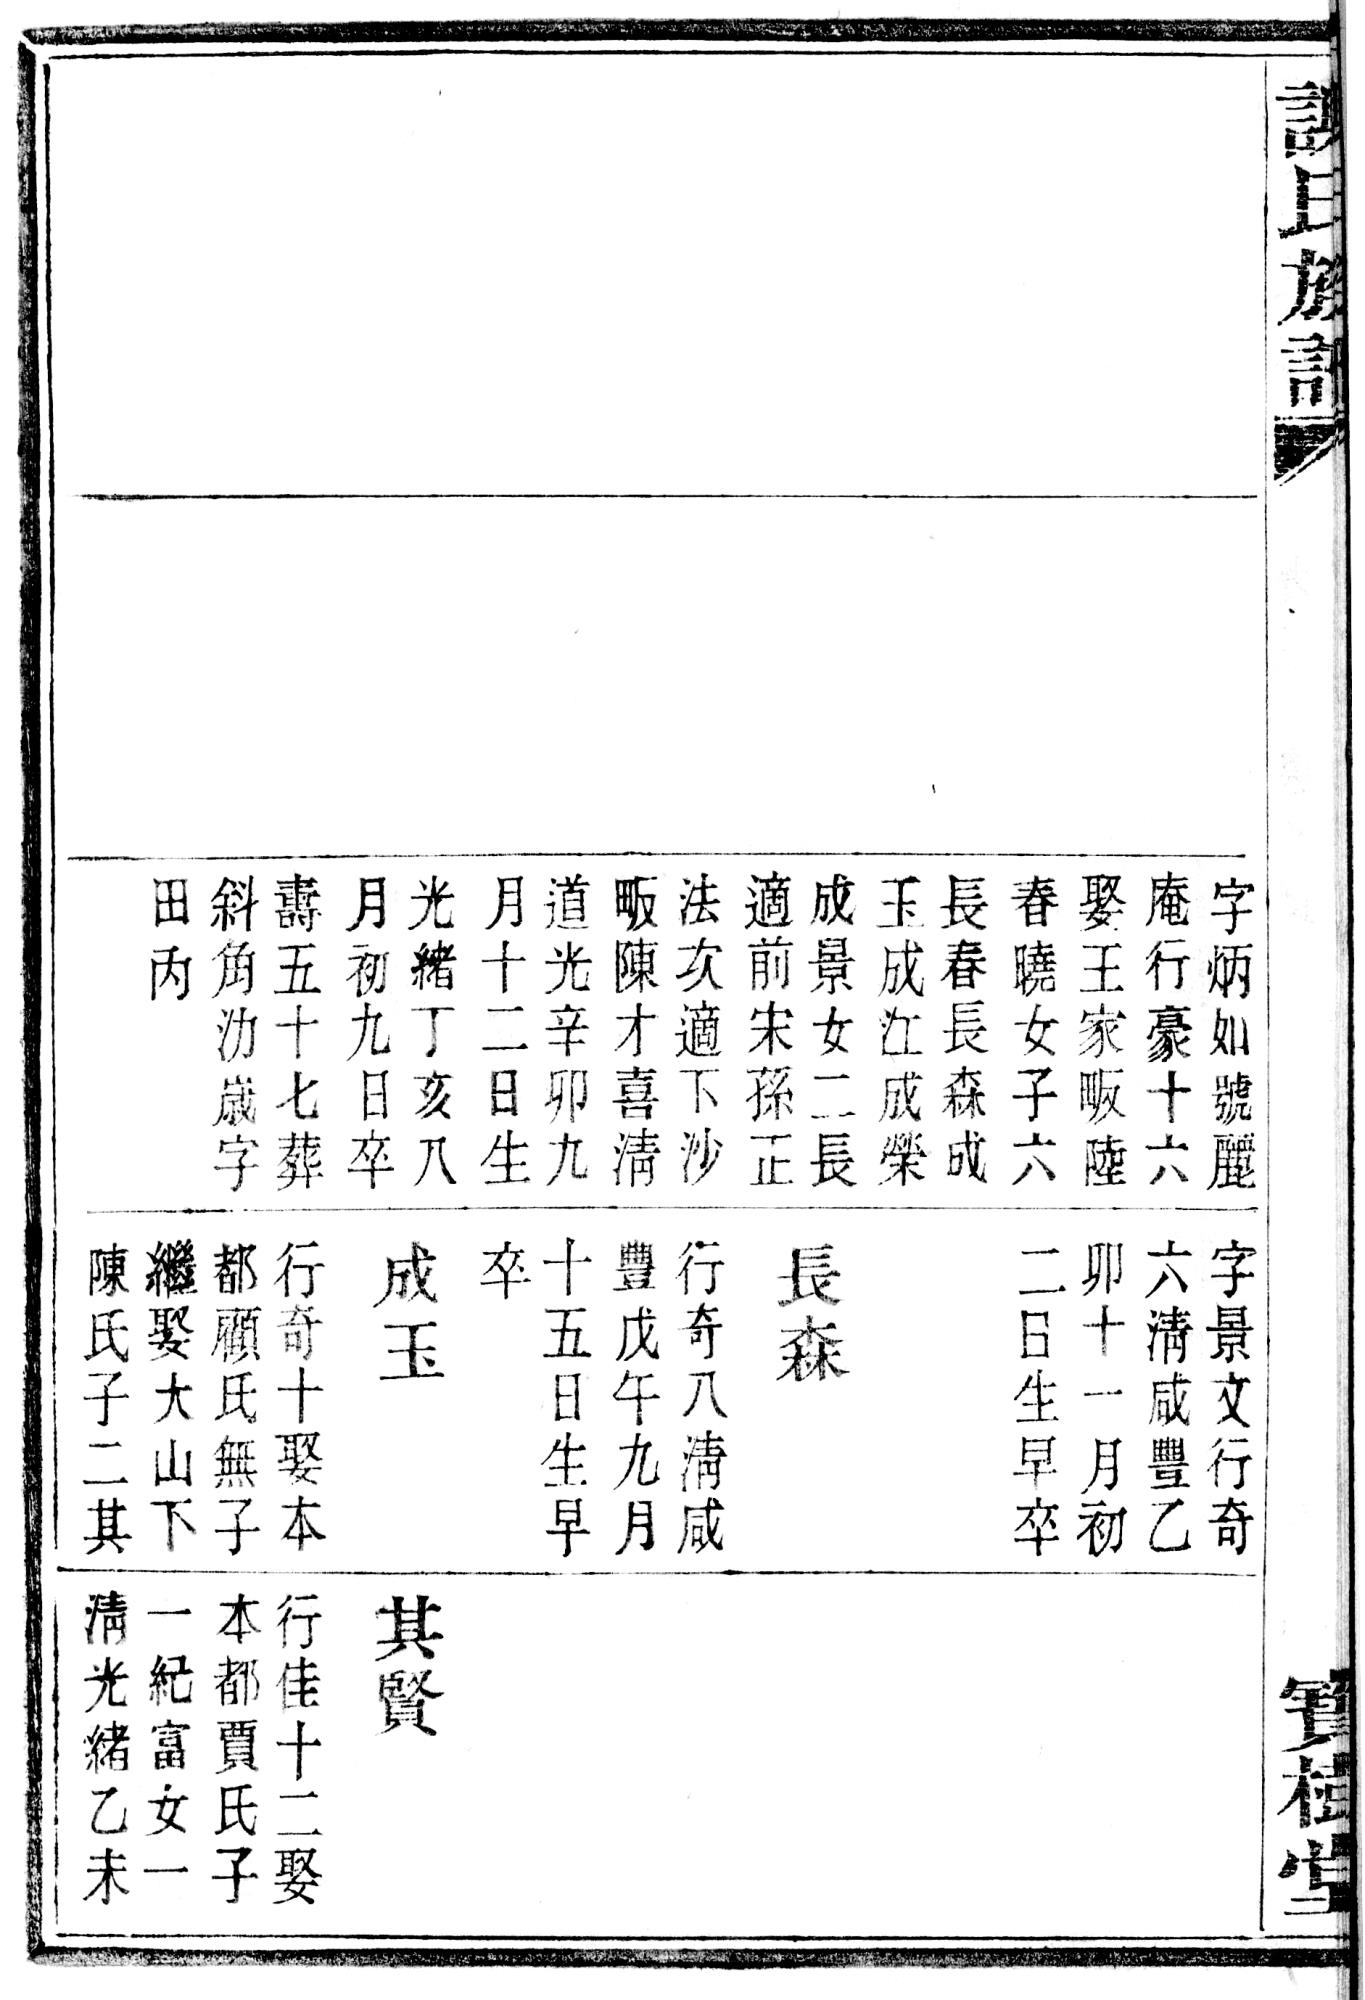 謝氏族譜
寶樹堂
字炳如號麗
庵行豪十六
娶王家畈陸
春曉女子六
長春長森成
玉成江成榮
成景女二長
適前宋孫正
法次適下沙
畈陳才喜清
道光辛卯九
月十二日生
光緒丁亥八
月初九日卒
壽五十七葬
斜角歲字
田丙
字景文行奇
六清咸豐乙
卯十一月初
二日生早卒
長森
行奇八清咸
豐戊午九月
十五日生早
卒
成玉
行奇十娶本
都顧氏無子
繼娶大山下
陳氏子二其
其賢
行佳十二娶
本都賈氏子
一紀富女一
清光緒乙未